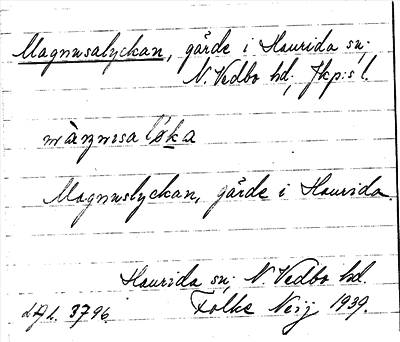 Magnusalyckan, gärde i Haurida sn;
N. Vedbo hd, Jkp:s l.
màŋnɷsa lỳka
Magnuslyckan, gärde i Haurida.
Haurida sn; N. Vedbo hd.
Folke Neij 1939.
3796.